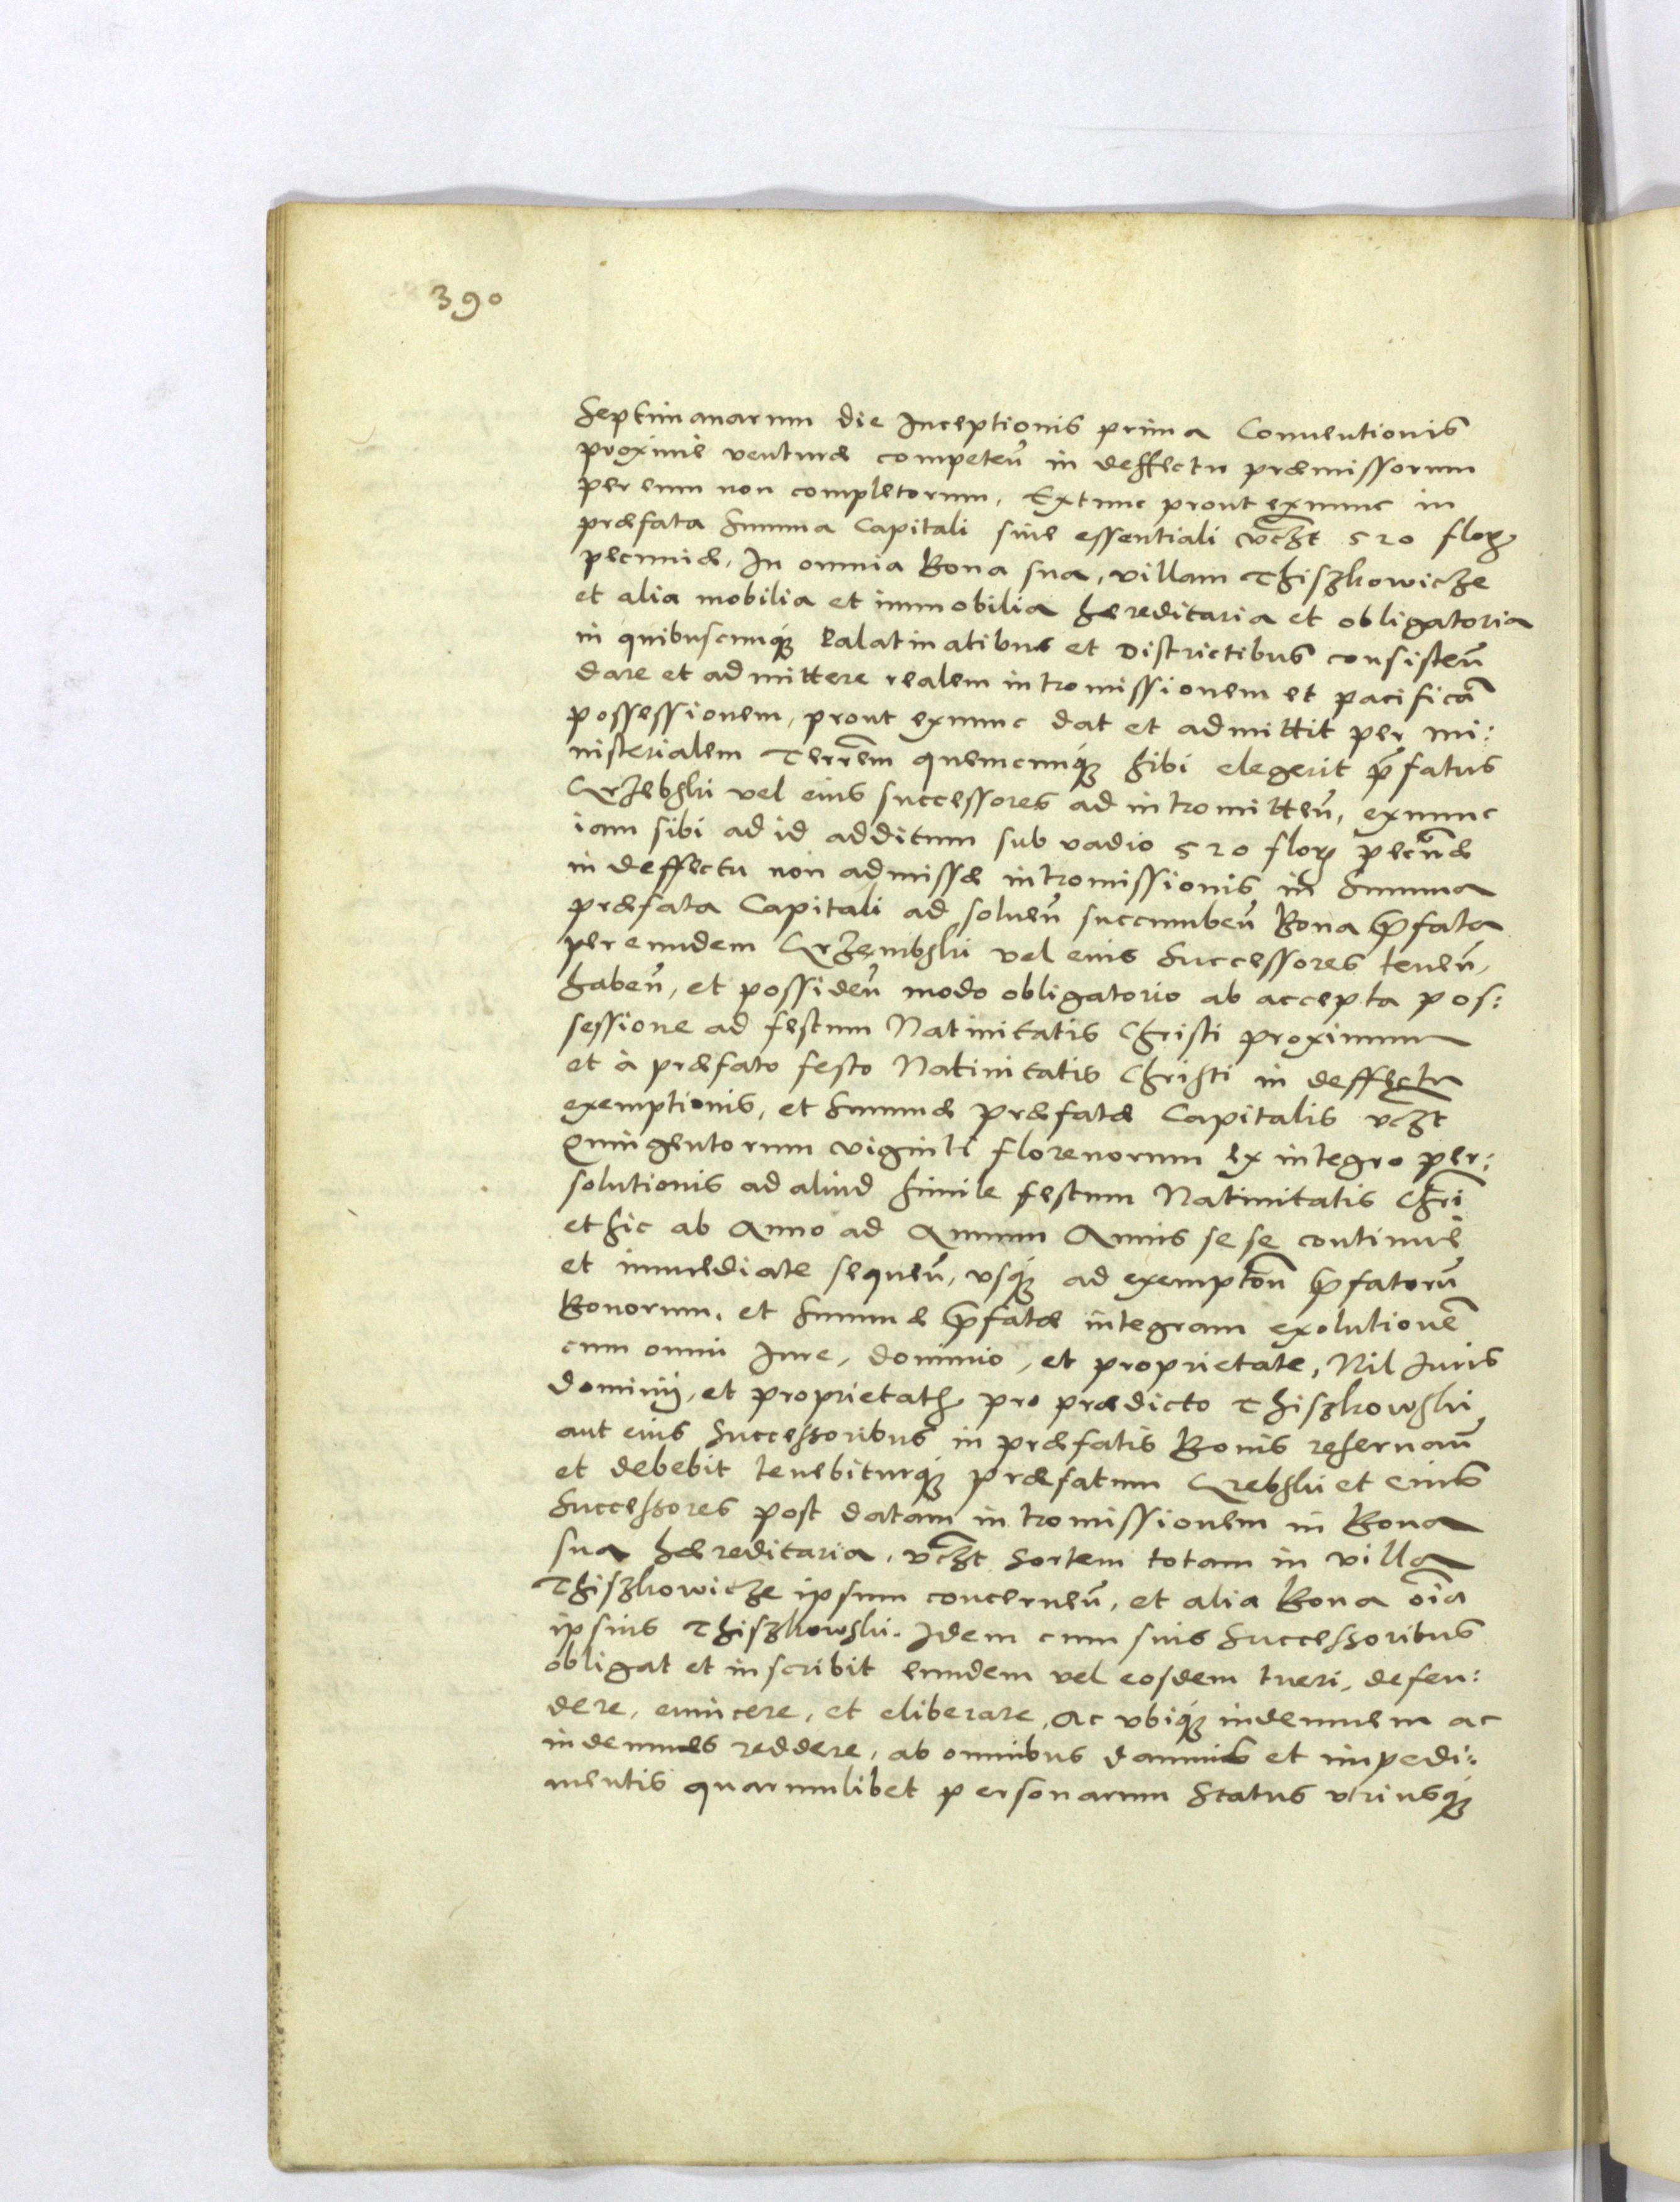 390
Septimanarum die Inceptionis prima Conuentionis
proxime venturæ competeñ in deffectu præmissorum
per eum non completorum, Extunc prout exnunc in
præfata Summa Capitali siue essentiali vczt 520 florꝝ
pecuniæ, In omnia Bona sua, villam Thiszkowicze
et alia mobilia et immobilia hereditaria et obligatoria
in quibuscunqꝫ Palatinatibus et Districtibus consisteñ
dare et admittere realem intromissionem et pacificã
possessionem, prout exnunc dat et admittit per mi:
nisterialem Terrem̃ quemcunqꝫ sibi elegerit p̃fatus
Krzebski vel eius successores ad intromitteñ, exnunc
iam sibi ad id additum sub vadio 520 florꝝ pecũæ
in deffectu non admissæ intromissionis in Summa
præfata Capitali ad solueñ succumbeñ Bona p̃fata
per eundem Krzembski vel eius Successores teneñ,
habeñ, et possideñ modo obligatorio ab accepta pos:
sessione ad festum Natiuitatis Christi proximum
et à præfato festo Natiuitatis Christi in deffectu
exemptionis, et Summæ præfatæ Capitalis vczt
Quingentorum viginti florenorum ex integro per:
solutionis ad aliud simile festum Natiuitatis Chri̅
et sic ab Anno ad Annum Annis se se continuè
et immediate sequeñ, vsqꝫ ad exemptõn p̃fatorũ
Bonorum, et Summæ p̃fatæ integram exolutionẽ
cum omni Iure, dominio, et proprietate, Nil Iuris
dominij, et proprietatꝭ pro prædicto Thiszkowski
aut eius Successoribus in præfatis Bonis reseruañ
et debebit tenebiturqꝫ præfatum Krebski et eius
Successores post datam intromissionem in Bona
sua hæreditaria, vczt Sortem totam in villa
Thiszkowicze ipsum concerneñ, et alia Bona oi̅a
ipsius Thiszkowski. Idem cum suis Successoribus
obligat et inscribit eundem vel eosdem tueri, defen:
dere, euincere, et eliberare, Ac vbiqꝫ indemnem ac
indemnes reddere, ab omnibus damnis et impedi:
mentis quarumlibet personarum Status vtriusqꝫ